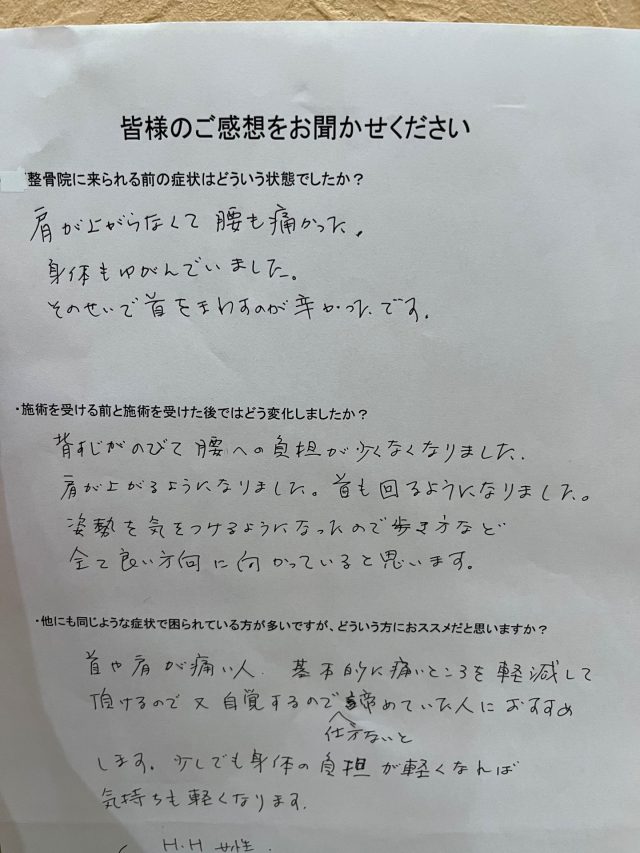 皆様のご感想をお聞かせください
整骨院に来られる前の症状はどういう状態でしたか？
肩が上がらなくて腰も痛かった。
身体もゆがんでいました。
そのせいで首をまわすのが辛かったです。
・施術を受ける前と施術を受けた後ではどう変化しましたか？
背すじがのびて腰への負担が少くなくなりました.
肩が上がるようになりました。首も回るようになりました。
姿勢を気をつけるようになったので歩き方など
全て良い方向に向かっていると思います。
・他にも同じような症状で困られている方が多いですが、どういう方におススメだと思いますか？
首や肩が痛い人. 基本的に痛いところを軽減して
頂けるので又自覚するので諦めていた人におすすめ
仕方ないと
します。少しでも身体の負担が軽くなれば
気持ちも軽くなります.
( H.H 女性.